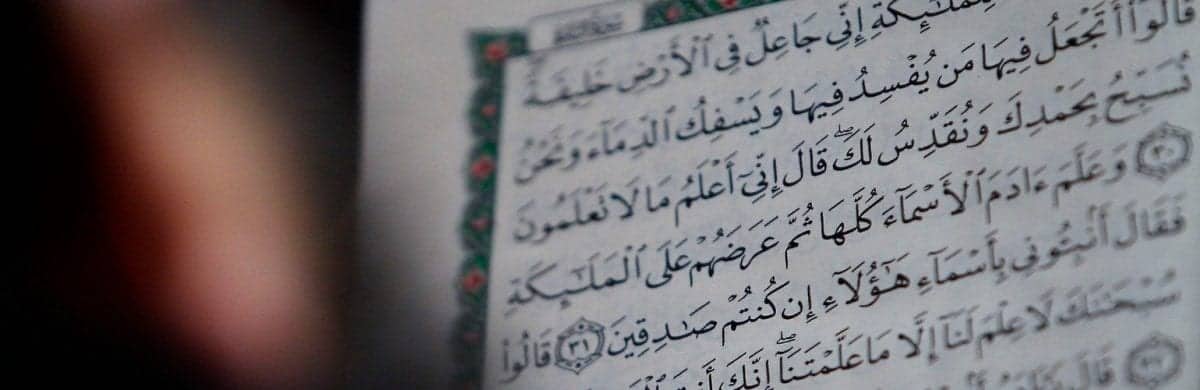 لِلْمَلَٰٓئِكَةِ إِنِّي جَاعِلٌ فِي ٱلْأَرْضِ خَلِيفَةً
قَالُوٓا۟ أَتَجْعَلُ فِيهَا مَن يُفْسِدُ فِيهَا وَيَسْفِكُ ٱلدِّمَآءَ وَنَحْنُ
نُسَبِّحُ بِحَمْدِكَ وَنُقَدِّسُ لَكَ ۖ قَالَ إِنِّيٓ أَعْلَمُ مَا لَا تَعْلَمُونَ
٣٠ وَعَلَّمَ ءَادَمَ ٱلْأَسْمَآءَ كُلَّهَا ثُمَّ عَرَضَهُمْ عَلَى ٱلْمَلَٰٓئِكَةِ
فَقَالَ أَنۢبِـُٔونِي بِأَسْمَآءِ هَٰٓؤُلَآءِ إِن كُنتُمْ صَٰدِقِينَ ٣١ قَالُوا۟
سُبْحَٰنَكَ لَا عِلْمَ لَنَآ إِلَّا مَا عَلَّمْتَنَآ ۖ إِنَّكَ أَنتَ
قَالَ